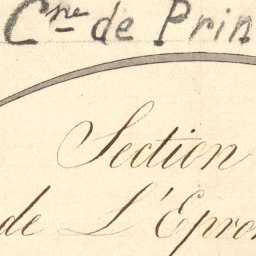 Cne de Prin
Section
de L'Epro